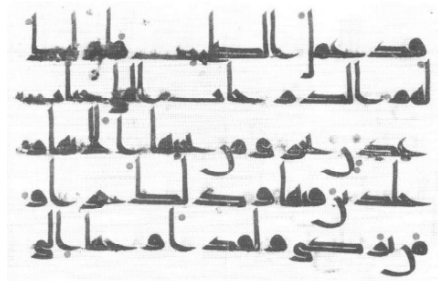 قد عمل الصلحت فاولئك
لهم الدرجت العلى جنت
عدن تجرى من تحتها الانهر
خلدين فيها وذلك جزاؤ
من تزكى ولقد اوحينا الى